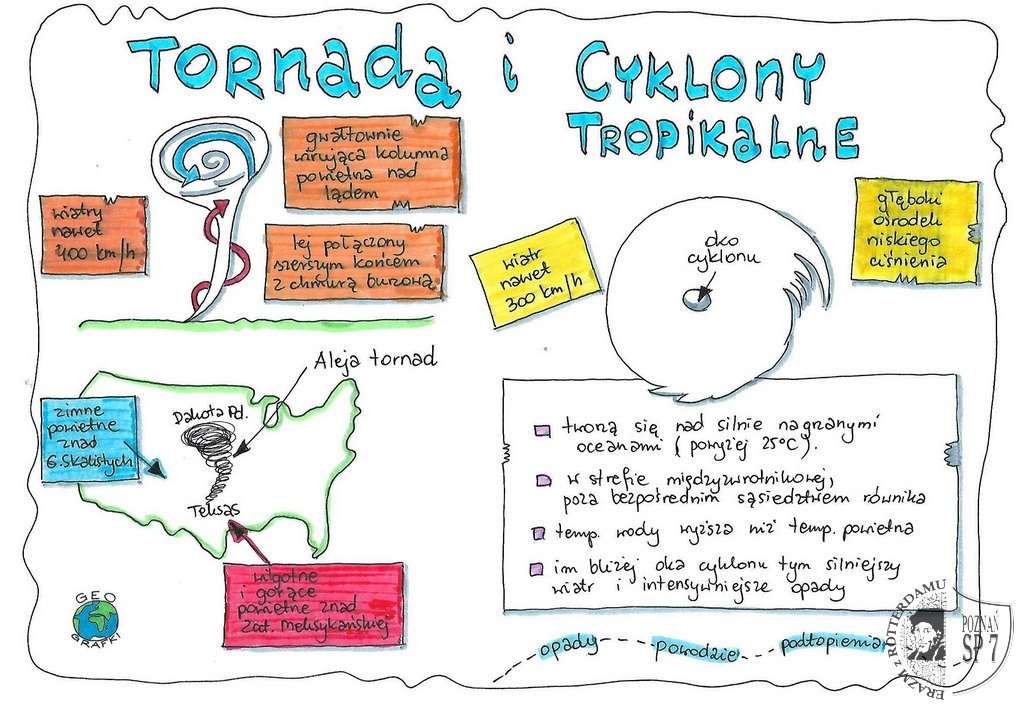 TORNADA i CYKLONY
TROPIKALNE
gwałtownie
wirująca kolumna
powietrza nad
lądem
wiatry
nawet
400 km/h
lej połączony
szerszym końcem
z chmurą burzową
wiatr
nawet
300 km/h
oko
cyklonu
głęboki
ośrodek
niskiego
ciśnienia
Aleja tornad
zimne
powietrze
znad
G. Skalistych
Dakota Pd.
Teksas
wilgotne
i gorące
powietrze znad
Zat. Meksykańskiej
tworzą się nad silnie nagrzanymi
oceanami (powyżej 25°C).
w strefie międzyzwrotnikowej,
poza bezpośrednim sąsiedztwem równika
temp. wody wyższa niż temp. powietrza
im bliżej oka cyklonu tym silniejszy
wiatr i intensywniejsze opady
opady powodzie podtopienia
GEO
GRAFKI
ERAZM Z ROTTERDAMU
POZNAŃ
SP 7